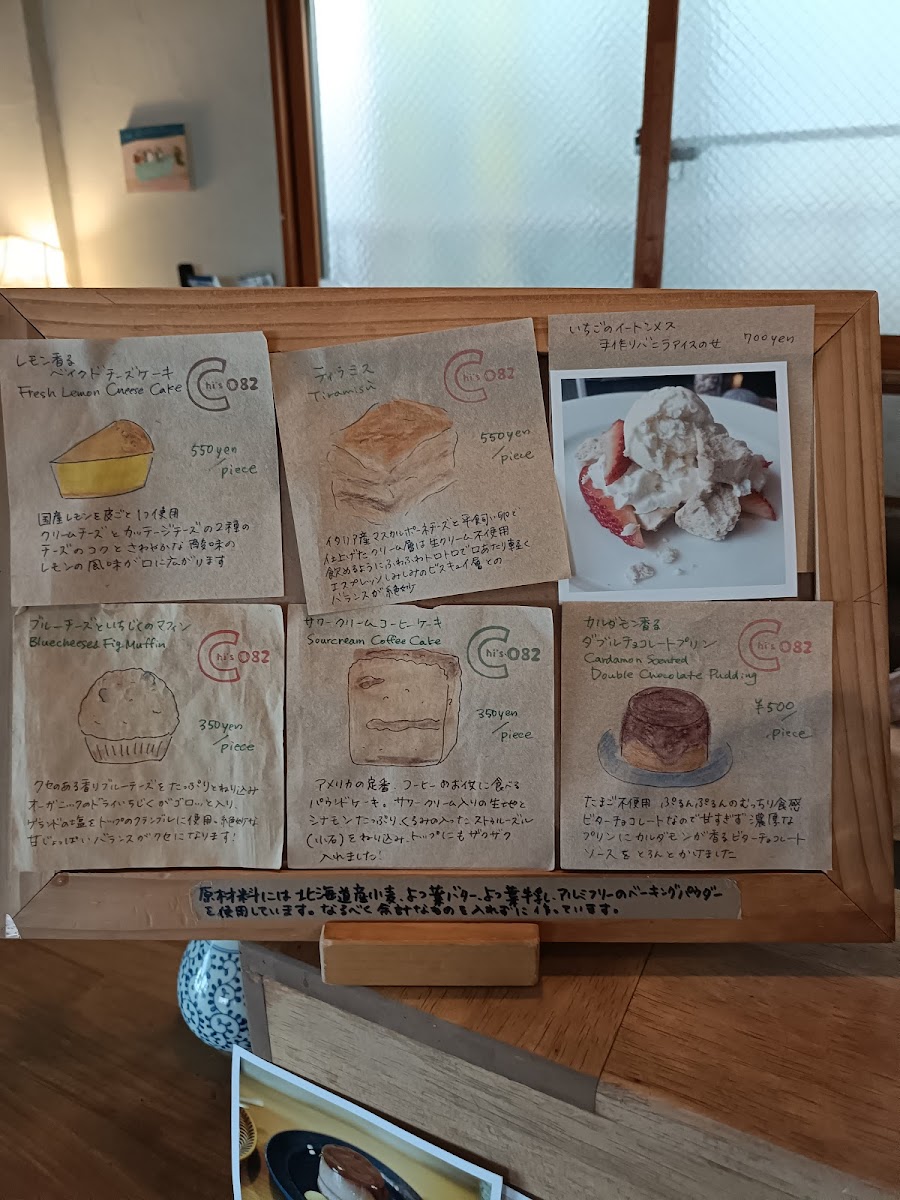 レモン香る
ベイクドチーズケーキ
Fresh Lemon Cheese Cake
Chi's 082
550yen
/piece
国産レモンを皮ごと1つ使用
クリームチーズとカッテージチーズの2種の
チーズのコクとさわやかな酸味の
レモンの風味が口に広がります
ティラミス
Tiramisù
Chi's 082
550yen
/piece
イタリア産マスカルポーネチーズと平飼い卵で
仕上げたクリーム層は生クリーム不使用
飲めるようにふわふわトロトロで口あたり軽く
エスプレッソしみしみのビスキュイ層との
バランスが絶妙
いちごのイートンメス
手作りバニラアイスのせ
700yen
ブルーチーズといちじくのマフィン
Bluecheeses Fig Muffin
Chi's 082
350yen
/piece
クセのある香りブルーチーズをたっぷりとねり込み
オーガニックのドライいちじくがゴロッと入り、
ゲランドの塩をトップのクランブルに使用、絶妙な
甘じょっぱいバランスがクセになります!
サワークリームコーヒーケーキ
Sourcream Coffee Cake
Chi's 082
350yen
/piece
アメリカの定番 コーヒーのお供に食べる
パウンドケーキ。サワークリーム入りの生地と
シナモンたっぷり、くるみの入ったストゥルーズル
(小石)をねり込み、トップにもザクザク
入れました!
カルダモン香る
ダブルチョコレートプリン
Cardamon Scented
Double Chocolate Pudding
Chi's 082
¥500
/piece
たまご不使用 ぷるんぷるんのむっちり食感
ビターチョコレートなので甘すぎず濃厚な
プリンにカルダモンが香るビターチョコレート
ソースをとろんとかけました
原材料には北海道産小麦、よつ葉バター、よつ葉牛乳、アルミフリーのベーキングパウダー
を使用しています。なるべく余計なものを入れずに作っています。